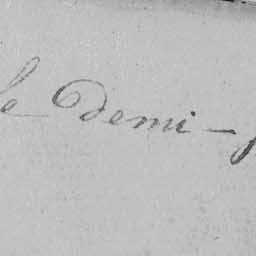 le demi-